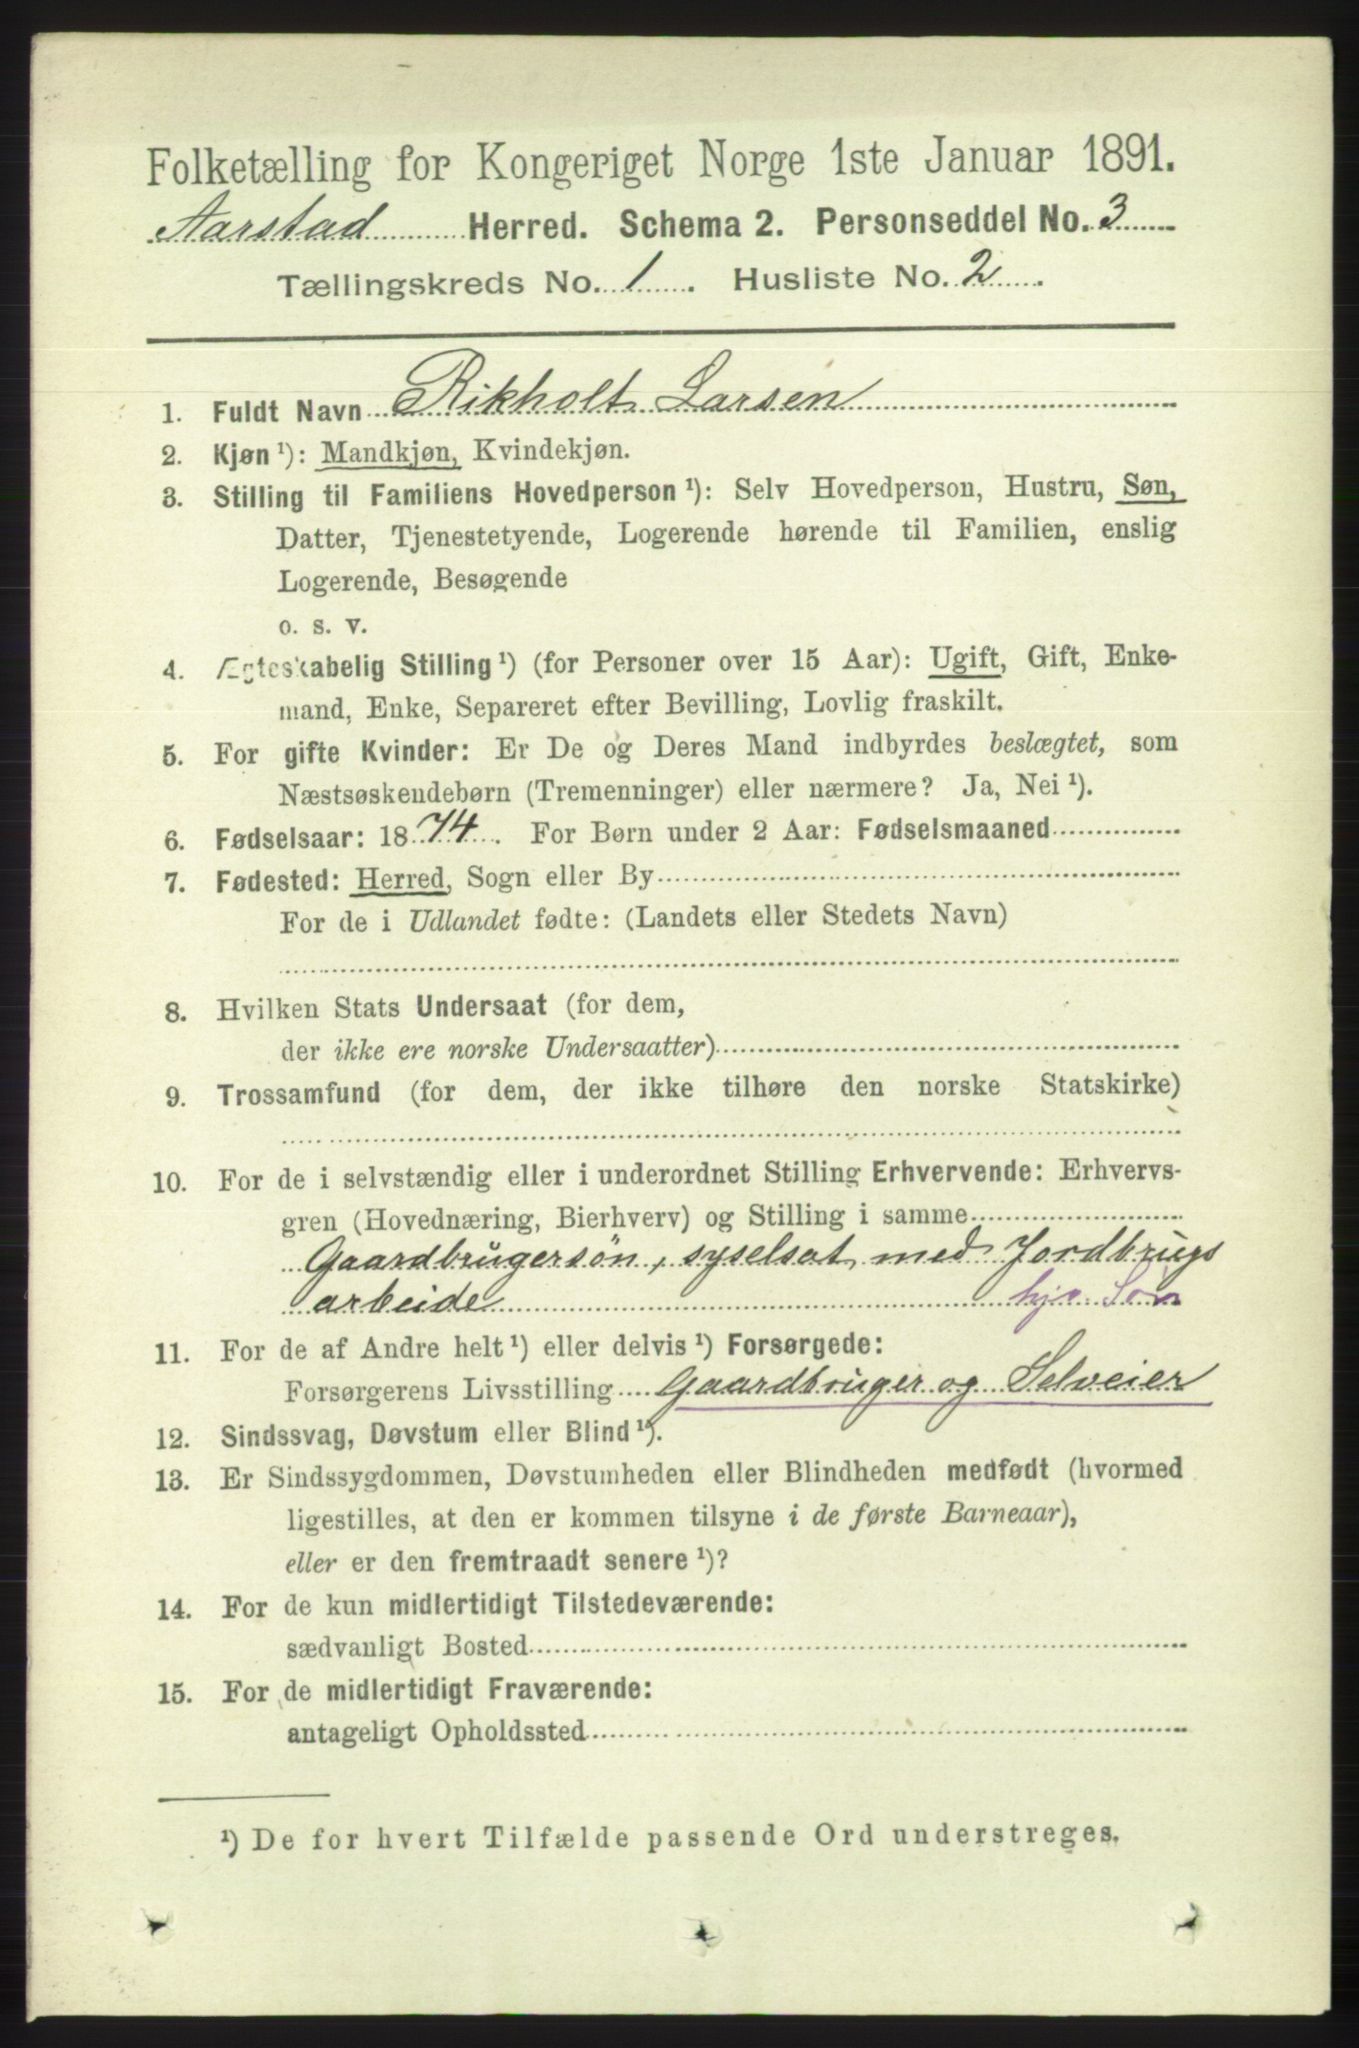 Folketælling for Kongeriget Norge 1ste Januar 1891.
Aarstad Herred. Schema 2. Personseddel No. 3
Tællingskreds No. 1. Husliste No. 2.
1. Fuldt Navn Rikholt Larsen
2. Kjøn ¹): Mandkjøn, Kvindekjøn.
3. Stilling til Familiens Hovedperson ¹): Selv Hovedperson, Hustru, Søn,
Datter, Tjenestetyende, Logerende hørende til Familien, enslig
Logerende, Besøgende
o. s. v.
4. Ægteskabelig Stilling ¹) (for Personer over 15 Aar): Ugift, Gift, Enke-
mand, Enke, Separeret efter Bevilling, Lovlig fraskilt.
5. For gifte Kvinder: Er De og Deres Mand indbyrdes beslægtet, som
Næstsøskendebørn (Tremenninger) eller nærmere? Ja, Nei ¹).
6. Fødselsaar: 1874. For Børn under 2 Aar: Fødselsmaaned
7. Fødested: Herred, Sogn eller By
For de i Udlandet fødte: (Landets eller Stedets Navn)
8. Hvilken Stats Undersaat (for dem,
der ikke ere norske Undersaatter)
9. Trossamfund (for dem, der ikke tilhøre den norske Statskirke)
10. For de i selvstændig eller i underordnet Stilling Erhvervende: Erhvervs-
gren (Hovednæring, Bierhverv) og Stilling i samme
Gaardbrugersøn, syselsat med Jordbrugs
arbeide hjv. Søn
11. For de af Andre helt ¹) eller delvis ¹) Forsørgede:
Forsørgerens Livsstilling Gaardbruger og Selveier
12. Sindssvag, Døvstum eller Blind ¹).
13. Er Sindssygdommen, Døvstumheden eller Blindheden medfødt (hvormed
ligestilles, at den er kommen tilsyne i de første Barneaar),
eller er den fremtraadt senere ¹)?
14. For de kun midlertidigt Tilstedeværende:
sædvanligt Bosted
15. For de midlertidigt Fraværende:
antageligt Opholdssted
¹) De for hvert Tilfælde passende Ord understreges.